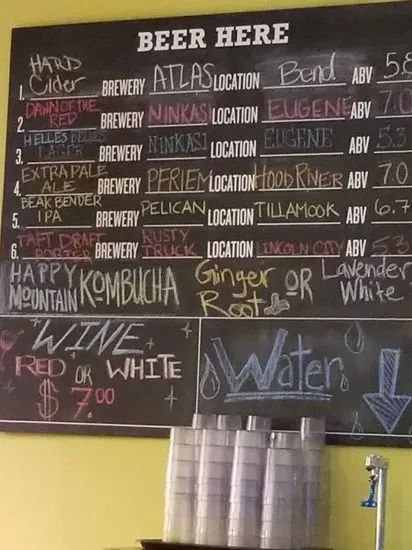 BEER HERE
1. HARD Cider BREWERY ATLAS LOCATION Bend ABV 5.8
2. DAWN OF THE RED BREWERY NINKASI LOCATION EUGENE ABV 7.0
3. HELLES BELLES LAGER BREWERY NINKASI LOCATION EUGENE ABV 5.3
4. EXTRA PALE ALE BREWERY PFRIEM LOCATION HOOD RIVER ABV 7.0
5. BEAK BENDER IPA BREWERY PELICAN LOCATION TILLAMOOK ABV 6.7
6. TAFT DRAFT PORTER BREWERY RUSTY TRUCK LOCATION LINCOLN CITY ABV 5.3
HAPPY MOUNTAIN KOMBUCHA Ginger Root OR Lavender White
WINE
RED OR WHITE
$7.00
Water